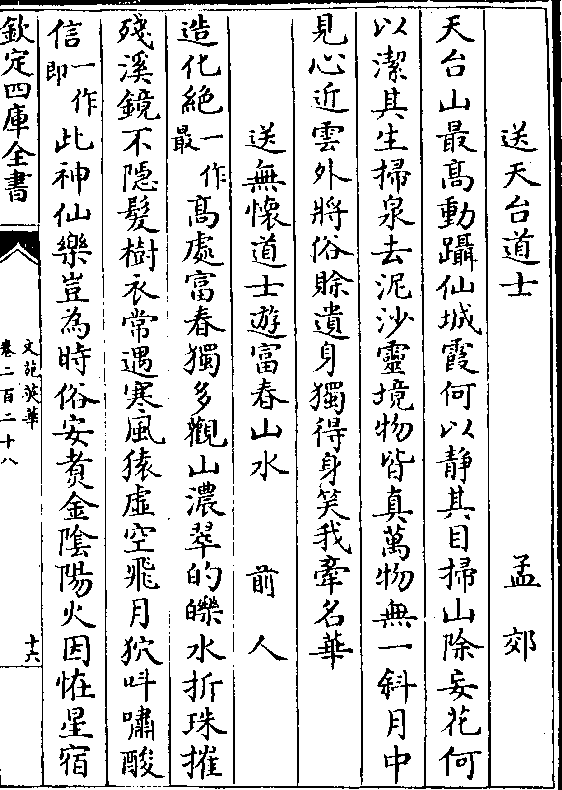 送天台道士　　　　　孟郊
天台山最髙動躡仙城霞何以靜其目掃山除妄花何
以潔其生掃泉去泥沙靈境物皆真萬物無一斜月中
見心近雲外將俗賖遺身獨得身笑我牽名華
送無懷道士遊富春山水　　前人
造化絶一作最髙處富春獨多觀山濃翠的皪水折珠摧
殘溪鏡不隱髮樹衣常遇寒風猿虚空飛月狖呌嘯酸
信一作即此神仙樂豈為時俗安煑金隂陽火囙恠星宿
欽定四庫全書
文苑英華
卷二百二十八
十六